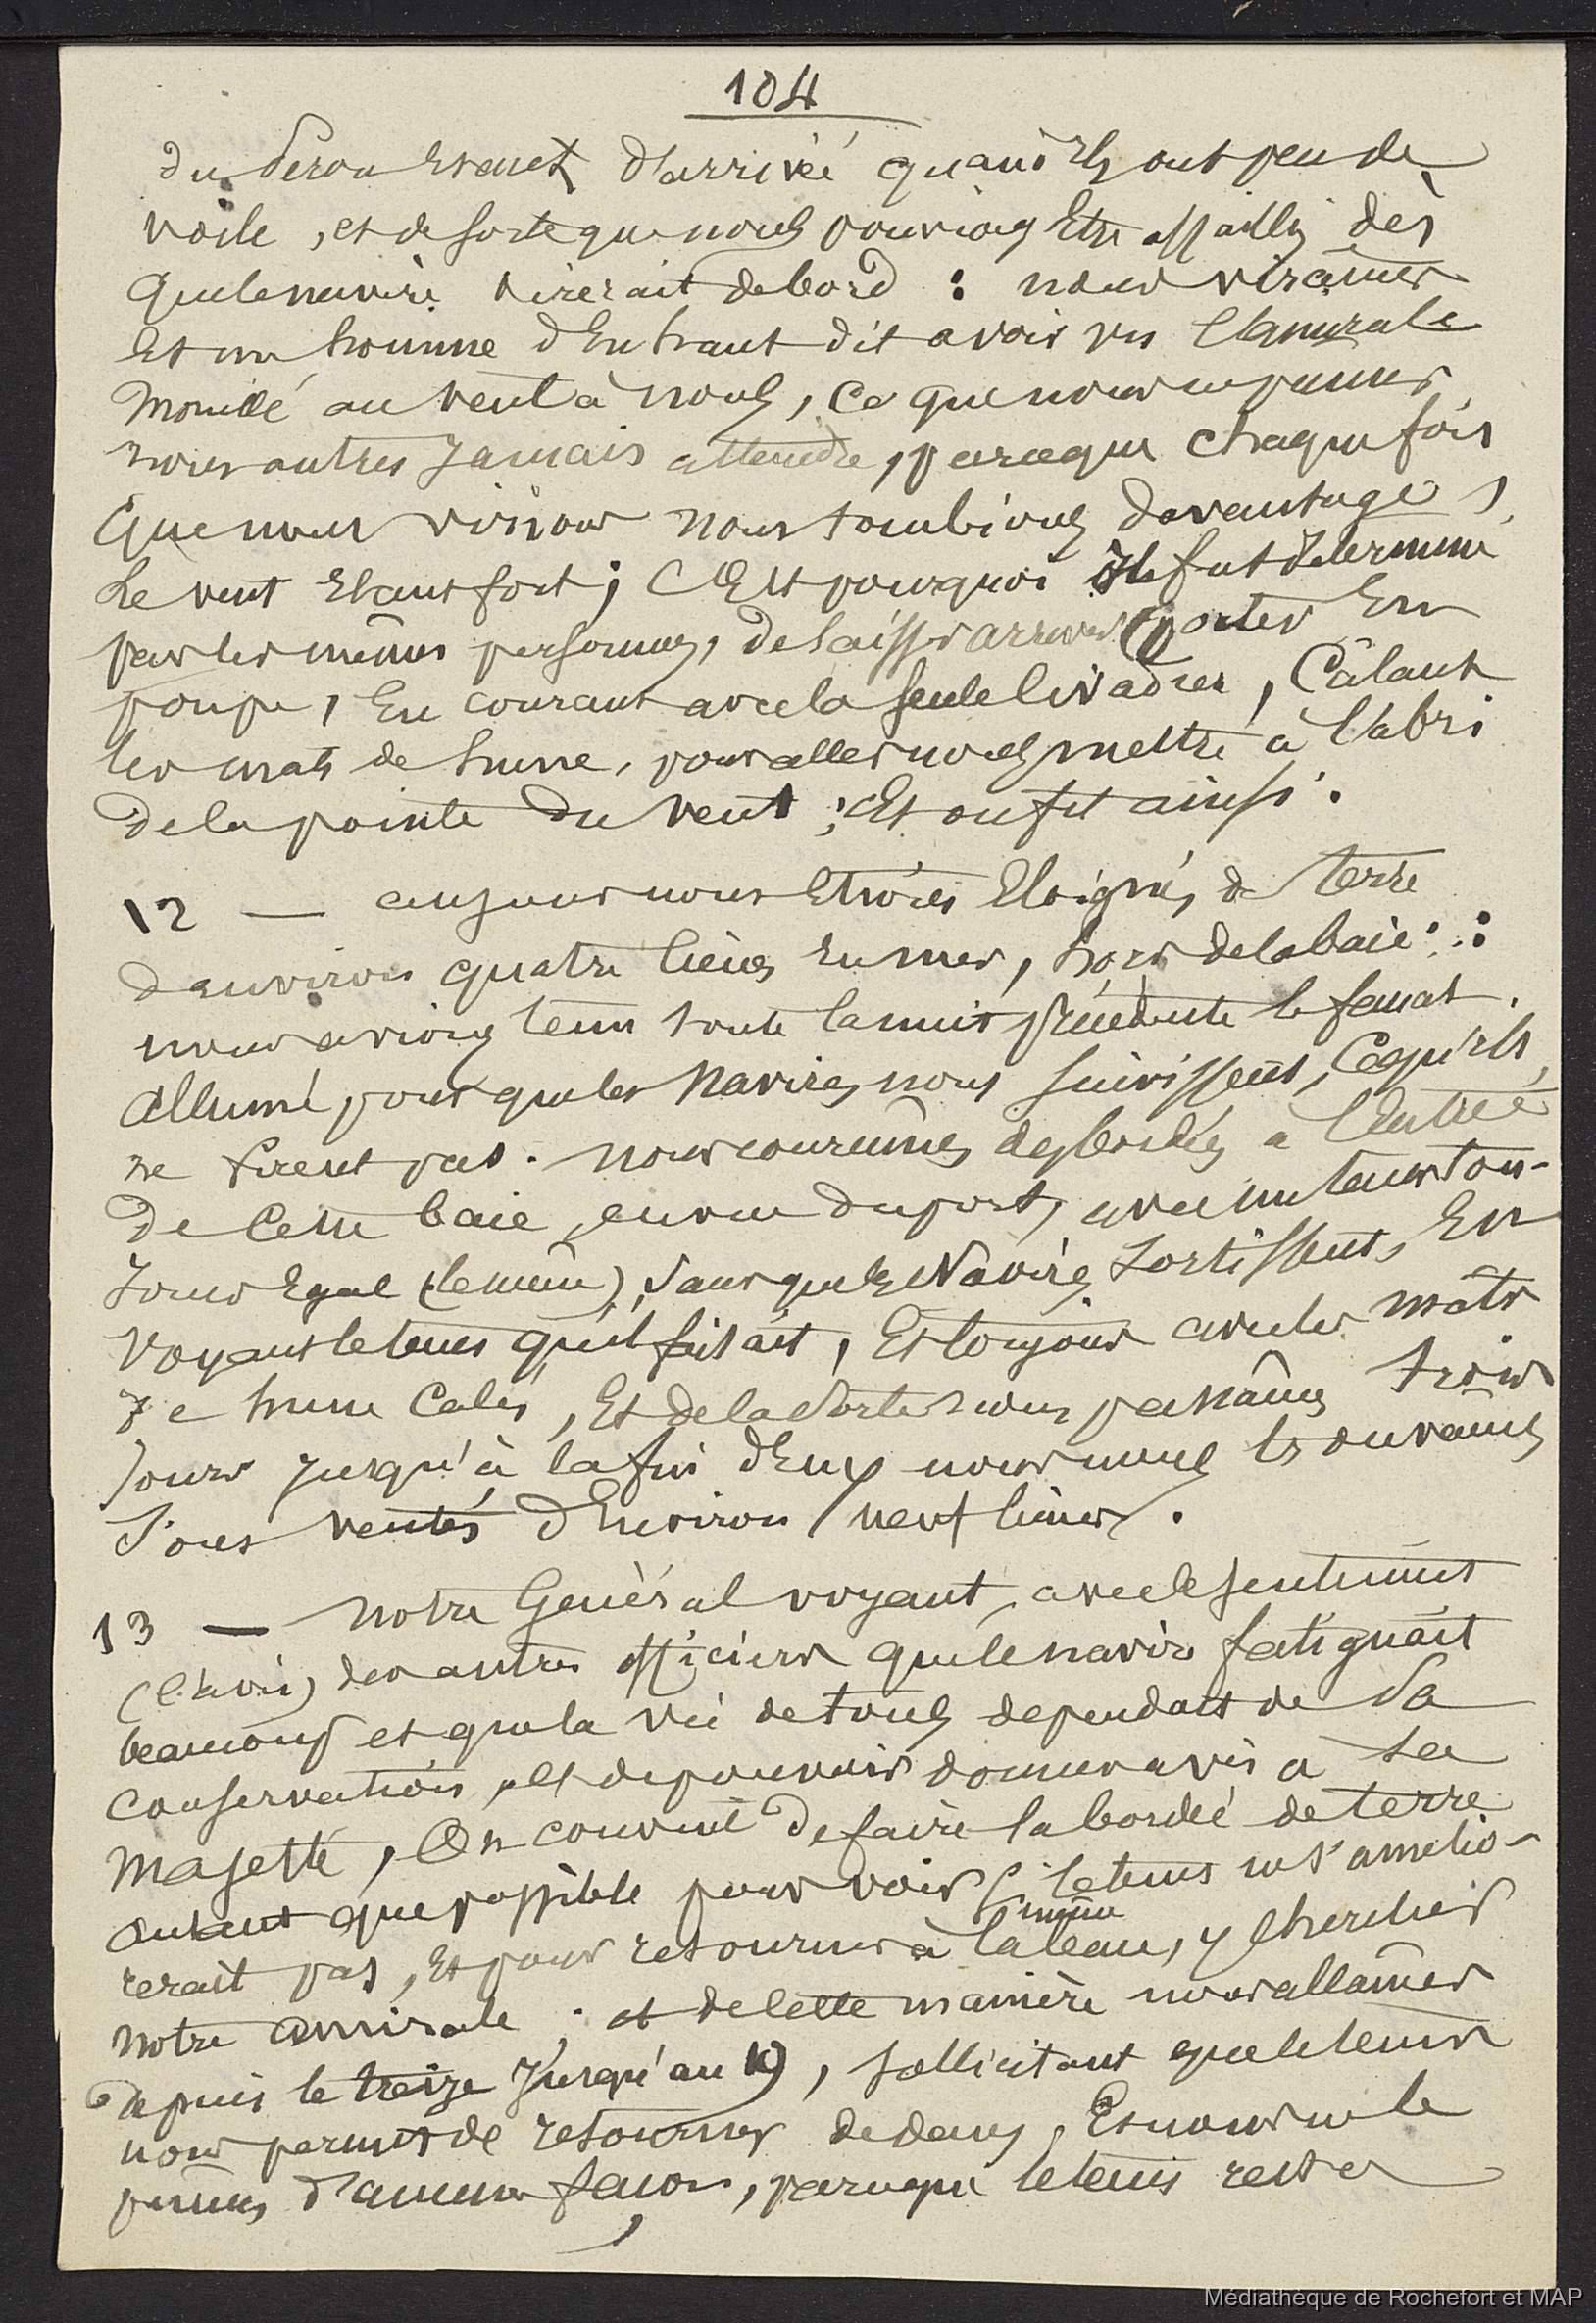 104
du Perou d'arrivée quand ils ont peu de
voile, et de sorte que nous pouvions Etre assaillis dès
que le navire virerait de bord : nous virâmes
Et un homme d'En haut dit avoir vu l'amirale
Mouillé au vent à nous, ce que nous ne pumes
nous autres Jamais atteindre, parceque chaque fois
Que nous virions nous tombions davantage,
Le vent Etant fort ; C'Est pourquoi Il fut determiné
par les mêmes personnes, de laisser arriver (porter En
poupe, En courant avec la seule livadier, Calant
les mats de hune, pour aller nous mettre à l'abri
de la pointe du vent ; Et on fit ainsi.
12 — au jour nous Etions Eloignés de terre
d'environ quatre lieues En mer, hors de la baie :
nous avions tenu toute la nuit précédente le fanal
allumé, pour que les Navires nous suivissent, Ce qu'ils
ne firent pas. nous courumes des bordées à l'Entrée
de Cette baie, en vue du port, avec un tems tou-
Jours Egal (le même), sans que les Navires sortissent, En
Voyant le tems qu'il faisait, Et toujours avec les mâts
de hune Calés, Et de la sorte nous passâmes trois
Jours jusqu'à la fin d'Eux nous nous trouvâmes
Sous ventés d'Environ neuf lieues.
13 — Notre Général voyant, avec le sentiment
(l'avis) des autres officiers que le navire fatiguait
beaucoup et que la vie de tous dependait de Sa
Conservation, et de pouvoir donner avis à Sa
Majesté, On convint de faire la bordée de terre
autant que possible pour voir si le tems ne s'amélio-
rerait pas, Et pour retourner à la même
baie, y chercher
Notre amirale ; et de cette manière nous allames
depuis le treize Jusqu'au 19, sollicitant que le tems
nous permit de retourner dedans, Et nous ne le
pumes d'aucune façon, parceque le tems resta
Médiathèque de Rochefort et MAP